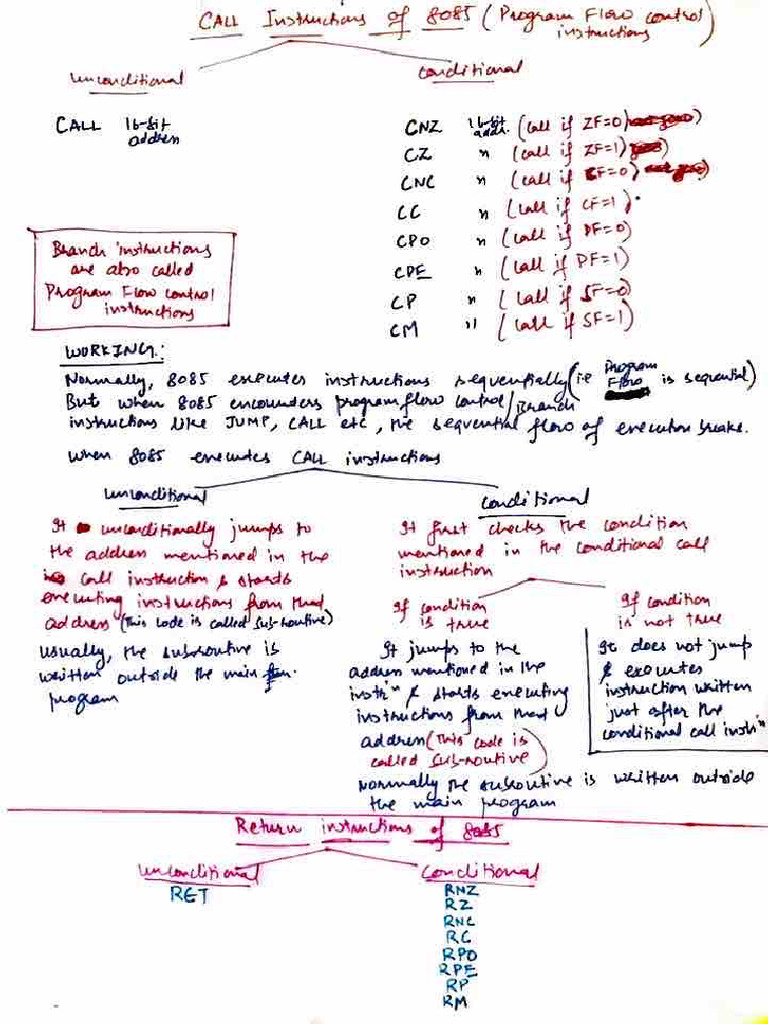 CALL Instructions of 8085 (Program Flow control instructions)
unconditional
conditional
CALL 16-bit address
CNZ 16-bit addr. (call if ZF=0)
CZ " (call if ZF=1)
CNC " (call if CF=0)
CC " (call if CF=1)
CPO " (call if PF=0)
CPE " (call if PF=1)
CP " (call if SF=0)
CM " (call if SF=1)
Branch instructions
are also called
Program Flow control
instructions
WORKING:
Normally, 8085 executes instructions sequentially (i.e Program Flow is sequential)
But when 8085 encounters program flow control/Branch
instructions like JUMP, CALL etc, the sequential flow of execution breaks.
when 8085 executes CALL instructions
unconditional
It unconditionally jumps to
the address mentioned in the
call instruction & starts
executing instructions from that
address (This code is called sub-routine)
usually, the subroutine is
written outside the main
program
conditional
It first checks the condition
mentioned in the conditional call
instruction
If condition
is true
It jumps to the
address mentioned in the
instr'n & starts executing
instructions from that
address (This code is
called sub-routine)
Normally the subroutine is written outside
the main program
If condition
is not true
It does not jump
& executes
instruction written
just after the
conditional call instr'n
Return instructions of 8085
unconditional
RET
conditional
RNZ
RZ
RNC
RC
RPO
RPE
RP
RM